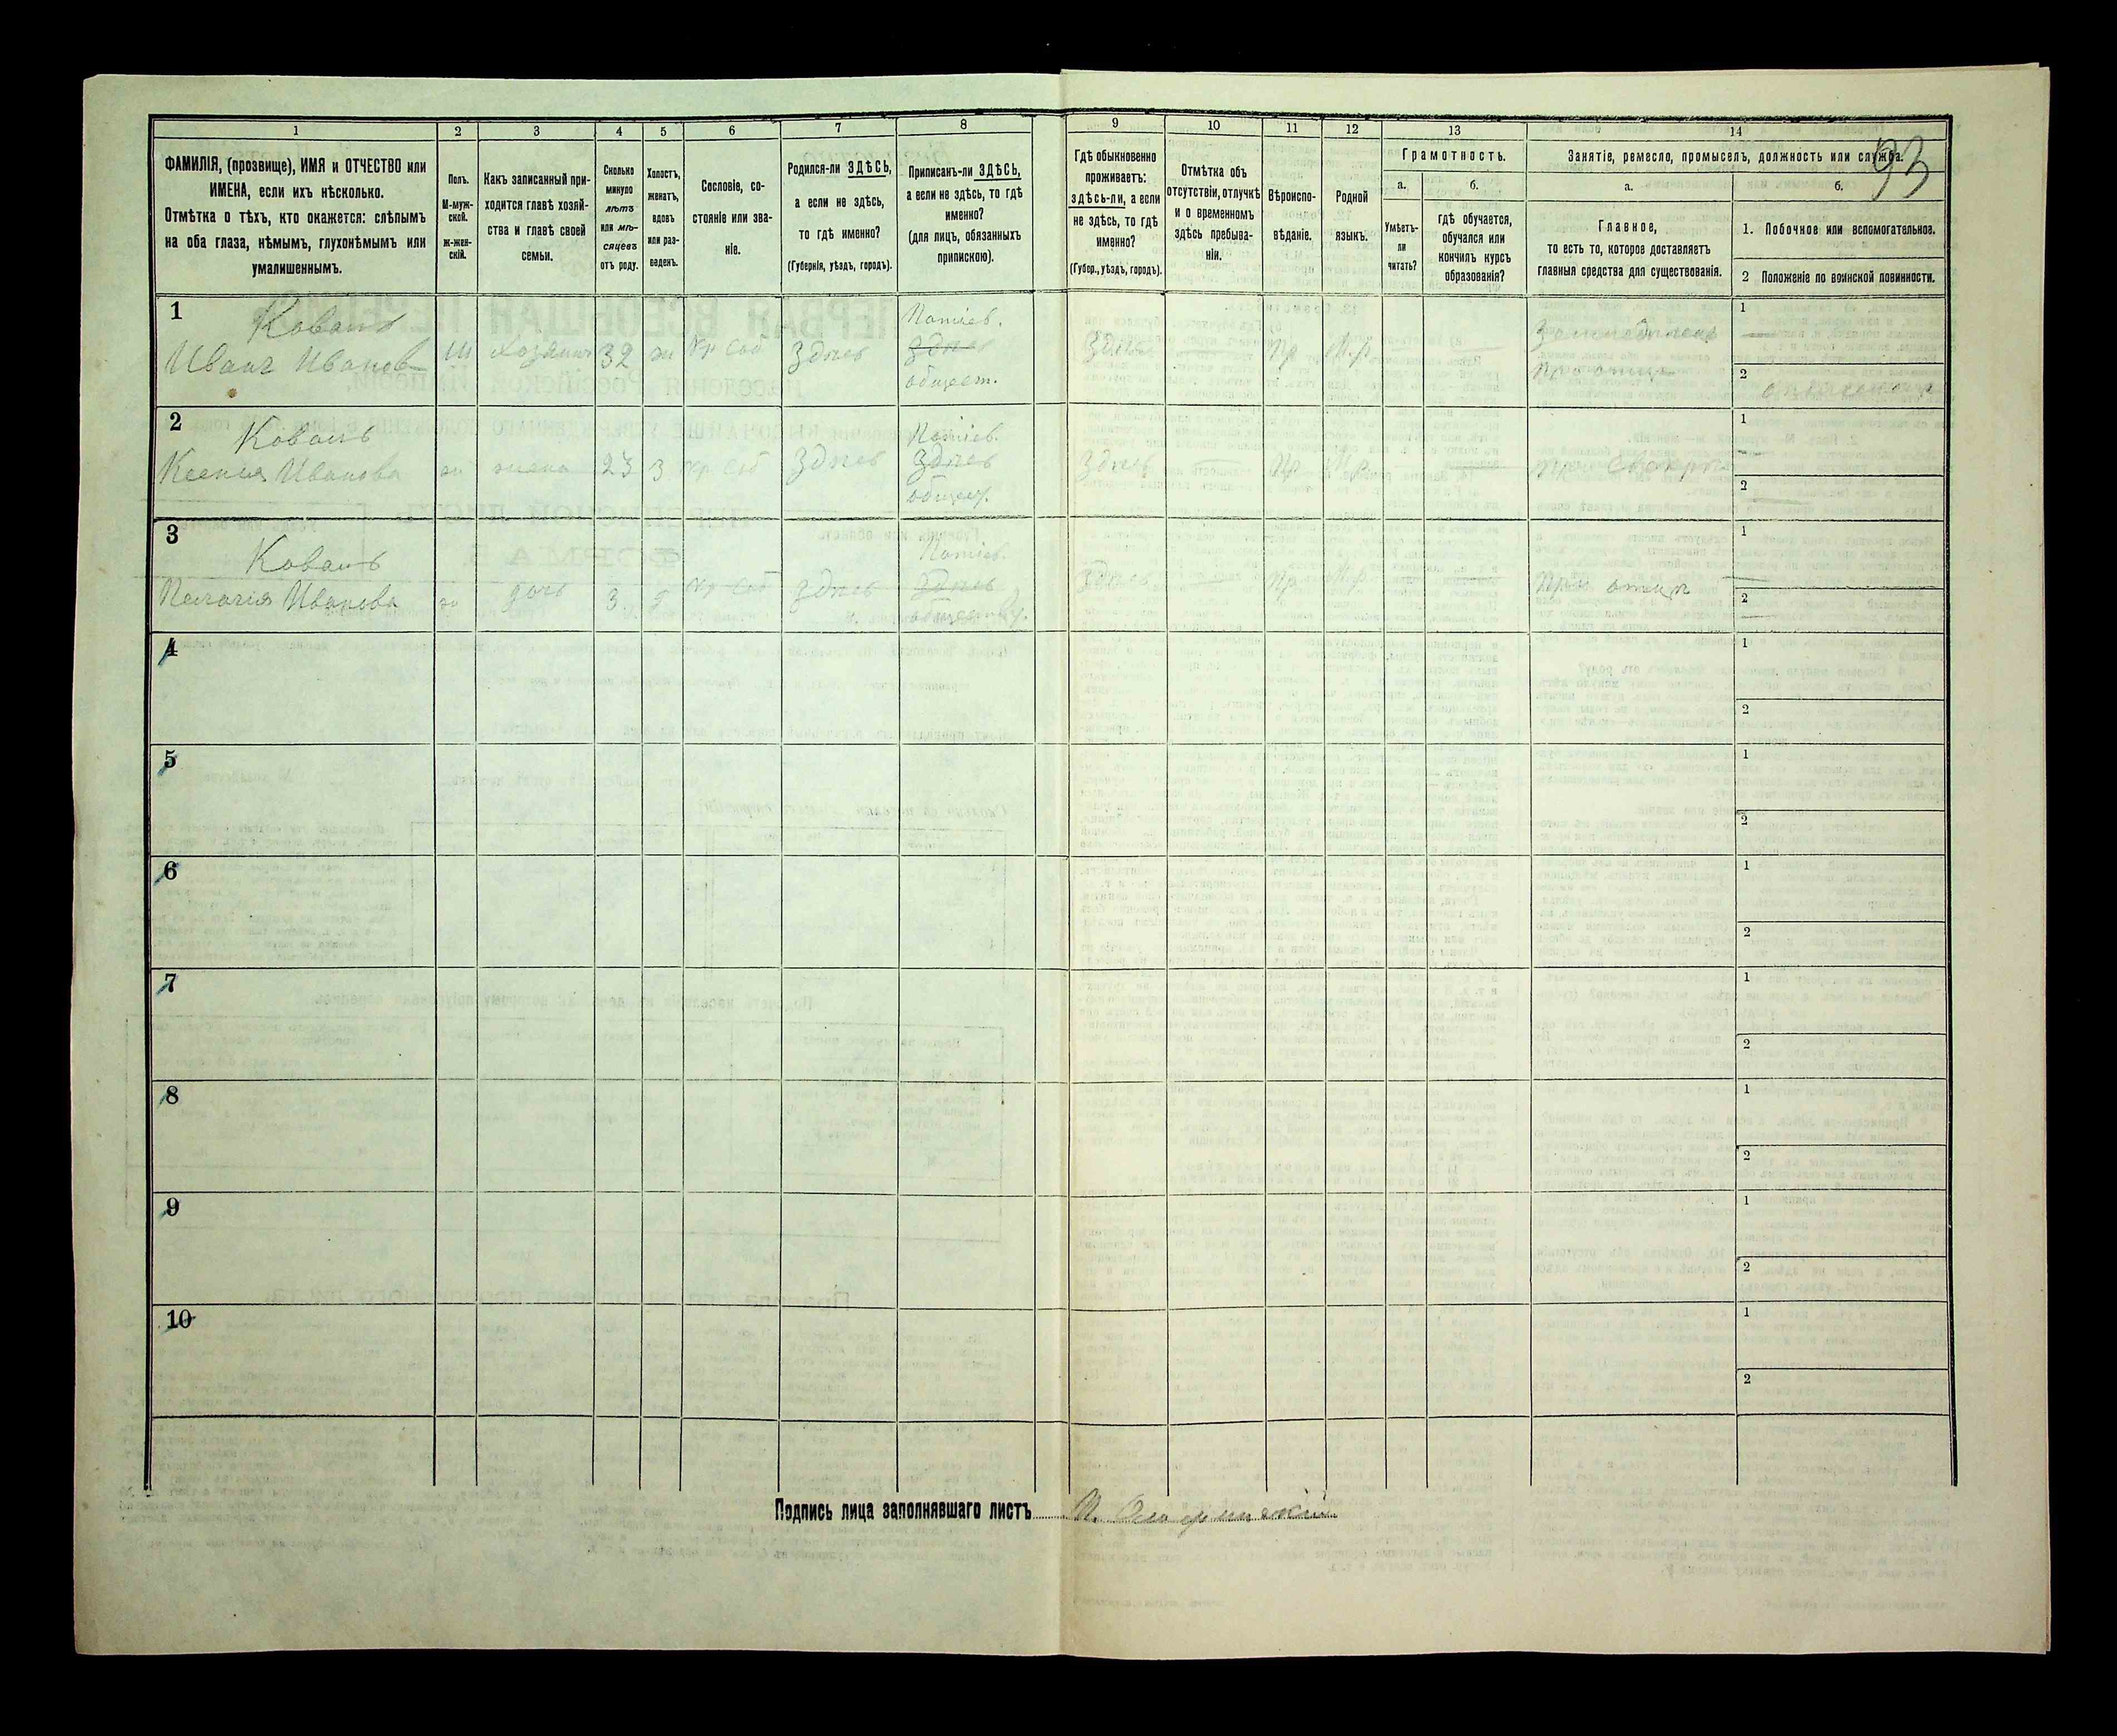 93
1 2 3 4 5 6 7 8 9 10 11 12 13 14
ФАМИЛІЯ, (прозвище), ИМЯ и ОТЧЕСТВО или
ИМЕНА, если ихъ нѣсколько.
Отмѣтка о тѣхъ, кто окажется: слѣпымъ
на оба глаза, нѣмымъ, глухонѣмымъ или
умалишеннымъ.
Полъ.
М-муж-
ской.
ж-жен-
скій.
Какъ записанный при-
ходится главѣ хозяй-
ства и главѣ своей
семьи.
Сколько
минуло
лѣтъ
или мѣ-
сяцевъ
отъ роду.
Холостъ,
женатъ,
вдовъ
или раз-
веденъ.
Сословіе, со-
стояніе или зва-
ніе.
Родился-ли ЗДѢСЬ,
а если не здѣсь,
то гдѣ именно?
(Губернія, уѣздъ, городъ).
Приписанъ-ли ЗДѢСЬ,
а если не здѣсь, то гдѣ
именно?
(для лицъ, обязанныхъ
припискою).
Гдѣ обыкновенно
проживаетъ:
здѣсь-ли, а если
не здѣсь, то гдѣ
именно?
(Губер., уѣздъ, городъ).
Отмѣтка объ
отсутствіи, отлучкѣ
и о временномъ
здѣсь пребыва-
ніи.
Вѣроиспо-
вѣданіе.
Родной
языкъ.
Грамотность.
а.
Умѣетъ-
ли
читать?
б.
гдѣ обучается,
обучался или
кончилъ курсъ
образованія?
Занятіе, ремесло, промыселъ, должность или служба.
а.
Главное,
то есть то, которое доставляетъ
главныя средства для существованія.
б.
1. Побочное или вспомогательное.
2 Положеніе по воинской повинности.
1 Коваль Потіев. 1
Иванъ Иванов М хозяин 32 ж Кр соб Здѣсь Здѣсь Здѣсь — Пр М.р.
общест. 2
2 Коваль Потіев. 1
Ксенія Иванова ж жена 23 з Кр соб Здѣсь Здѣсь Здѣсь — Пр М.р.
2
3 Коваль Потіев. 1
Пелагія Иванова ж дочь 3 д Кр соб Здѣсь Здѣсь Здѣсь — Пр М.р. При отцѣ —
2
4 1
2
5 1
2
6 1
2
7 1
2
8 1
2
9 1
2
10 1
2
Подпись лица заполнявшаго листъ